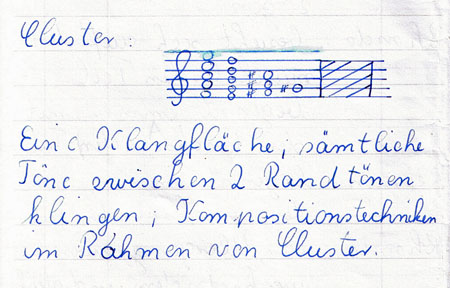 Cluster:
Eine Klangfläche, sämtliche
Töne zwischen 2 Randtönen
klingen; Kompositionstechniken
im Rahmen von Cluster.